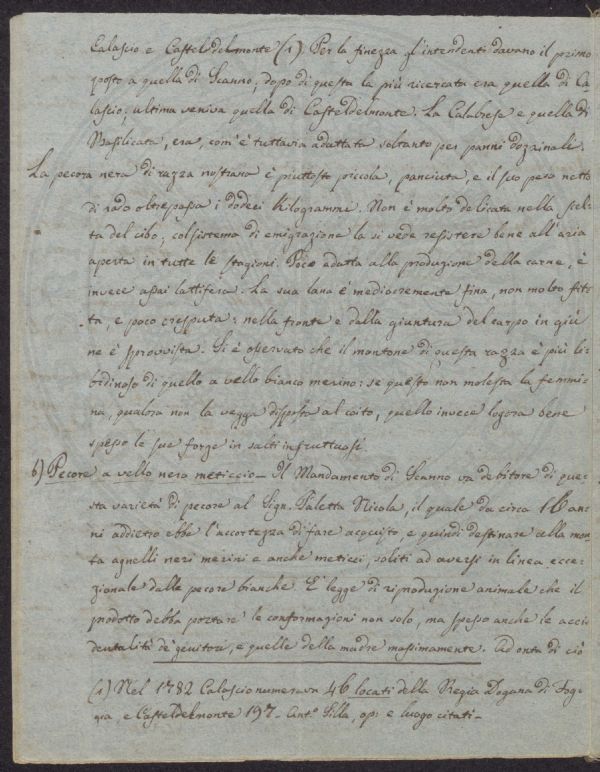 Calascio e Casteldelmonte (1). Per la finezza gl'intendenti davano il primo
posto a quella di Scanno; dopo di questa la più ricercata era quella di Ca-
lascio; ultima veniva quella di Casteldelmonte. La Calabrese e quella di
Basilicata, era, com'è tuttavia adattata soltanto per panni dozzinali.
La pecora nera di razza nostrana è piuttosto piccola, panciuta, e il suo peso netto
di rado oltrepassa i dodici Kilogrammi. Non è molto delicata nella scel-
ta del cibo; col sistema di emigrazione la si vede resistere bene all'aria
aperta in tutte le stagioni. Poco adatta alla produzione della carne, è
invece assai lattifera. La sua lana è mediocremente fina, non molto fit-
ta, e poco crespata: nella fronte e dalla giuntura del carpo in giù
ne è sprovvista. Si è osservato che il montone di questa razza è più li-
bidinoso di quello a vello bianco merino: se questo non molesta la femmi-
na, qualora non la vegga disposta al coito, quello invece logora bene
spesso le sue forze in salti infruttuosi.
b) Pecore a vello nero meticcio_ Il Mandamento di Scanno va debitore di que-
sta varietà di pecore al Sign. Paletta Nicola, il quale da circa 16 an-
ni addietro ebbe l'accortezza di fare acquisto, e quindi destinare alla mon-
ta agnelli neri merini e anche meticci, soliti ad aversi in linea ecce-
zionale dalle pecore bianche. È legge di riproduzione animale che il
prodotto debba portare le conformazioni non solo, ma spesso anche le acci-
dentalità de' genitori, e quelle della madre massimamente. Ad onta di ciò
(1) Nel 1782 Calascio numerava 46 locati della Regia Dogana di Fog-
gia, e Casteldelmonte 197_ Ant.° Silla, op: e luogo citati_